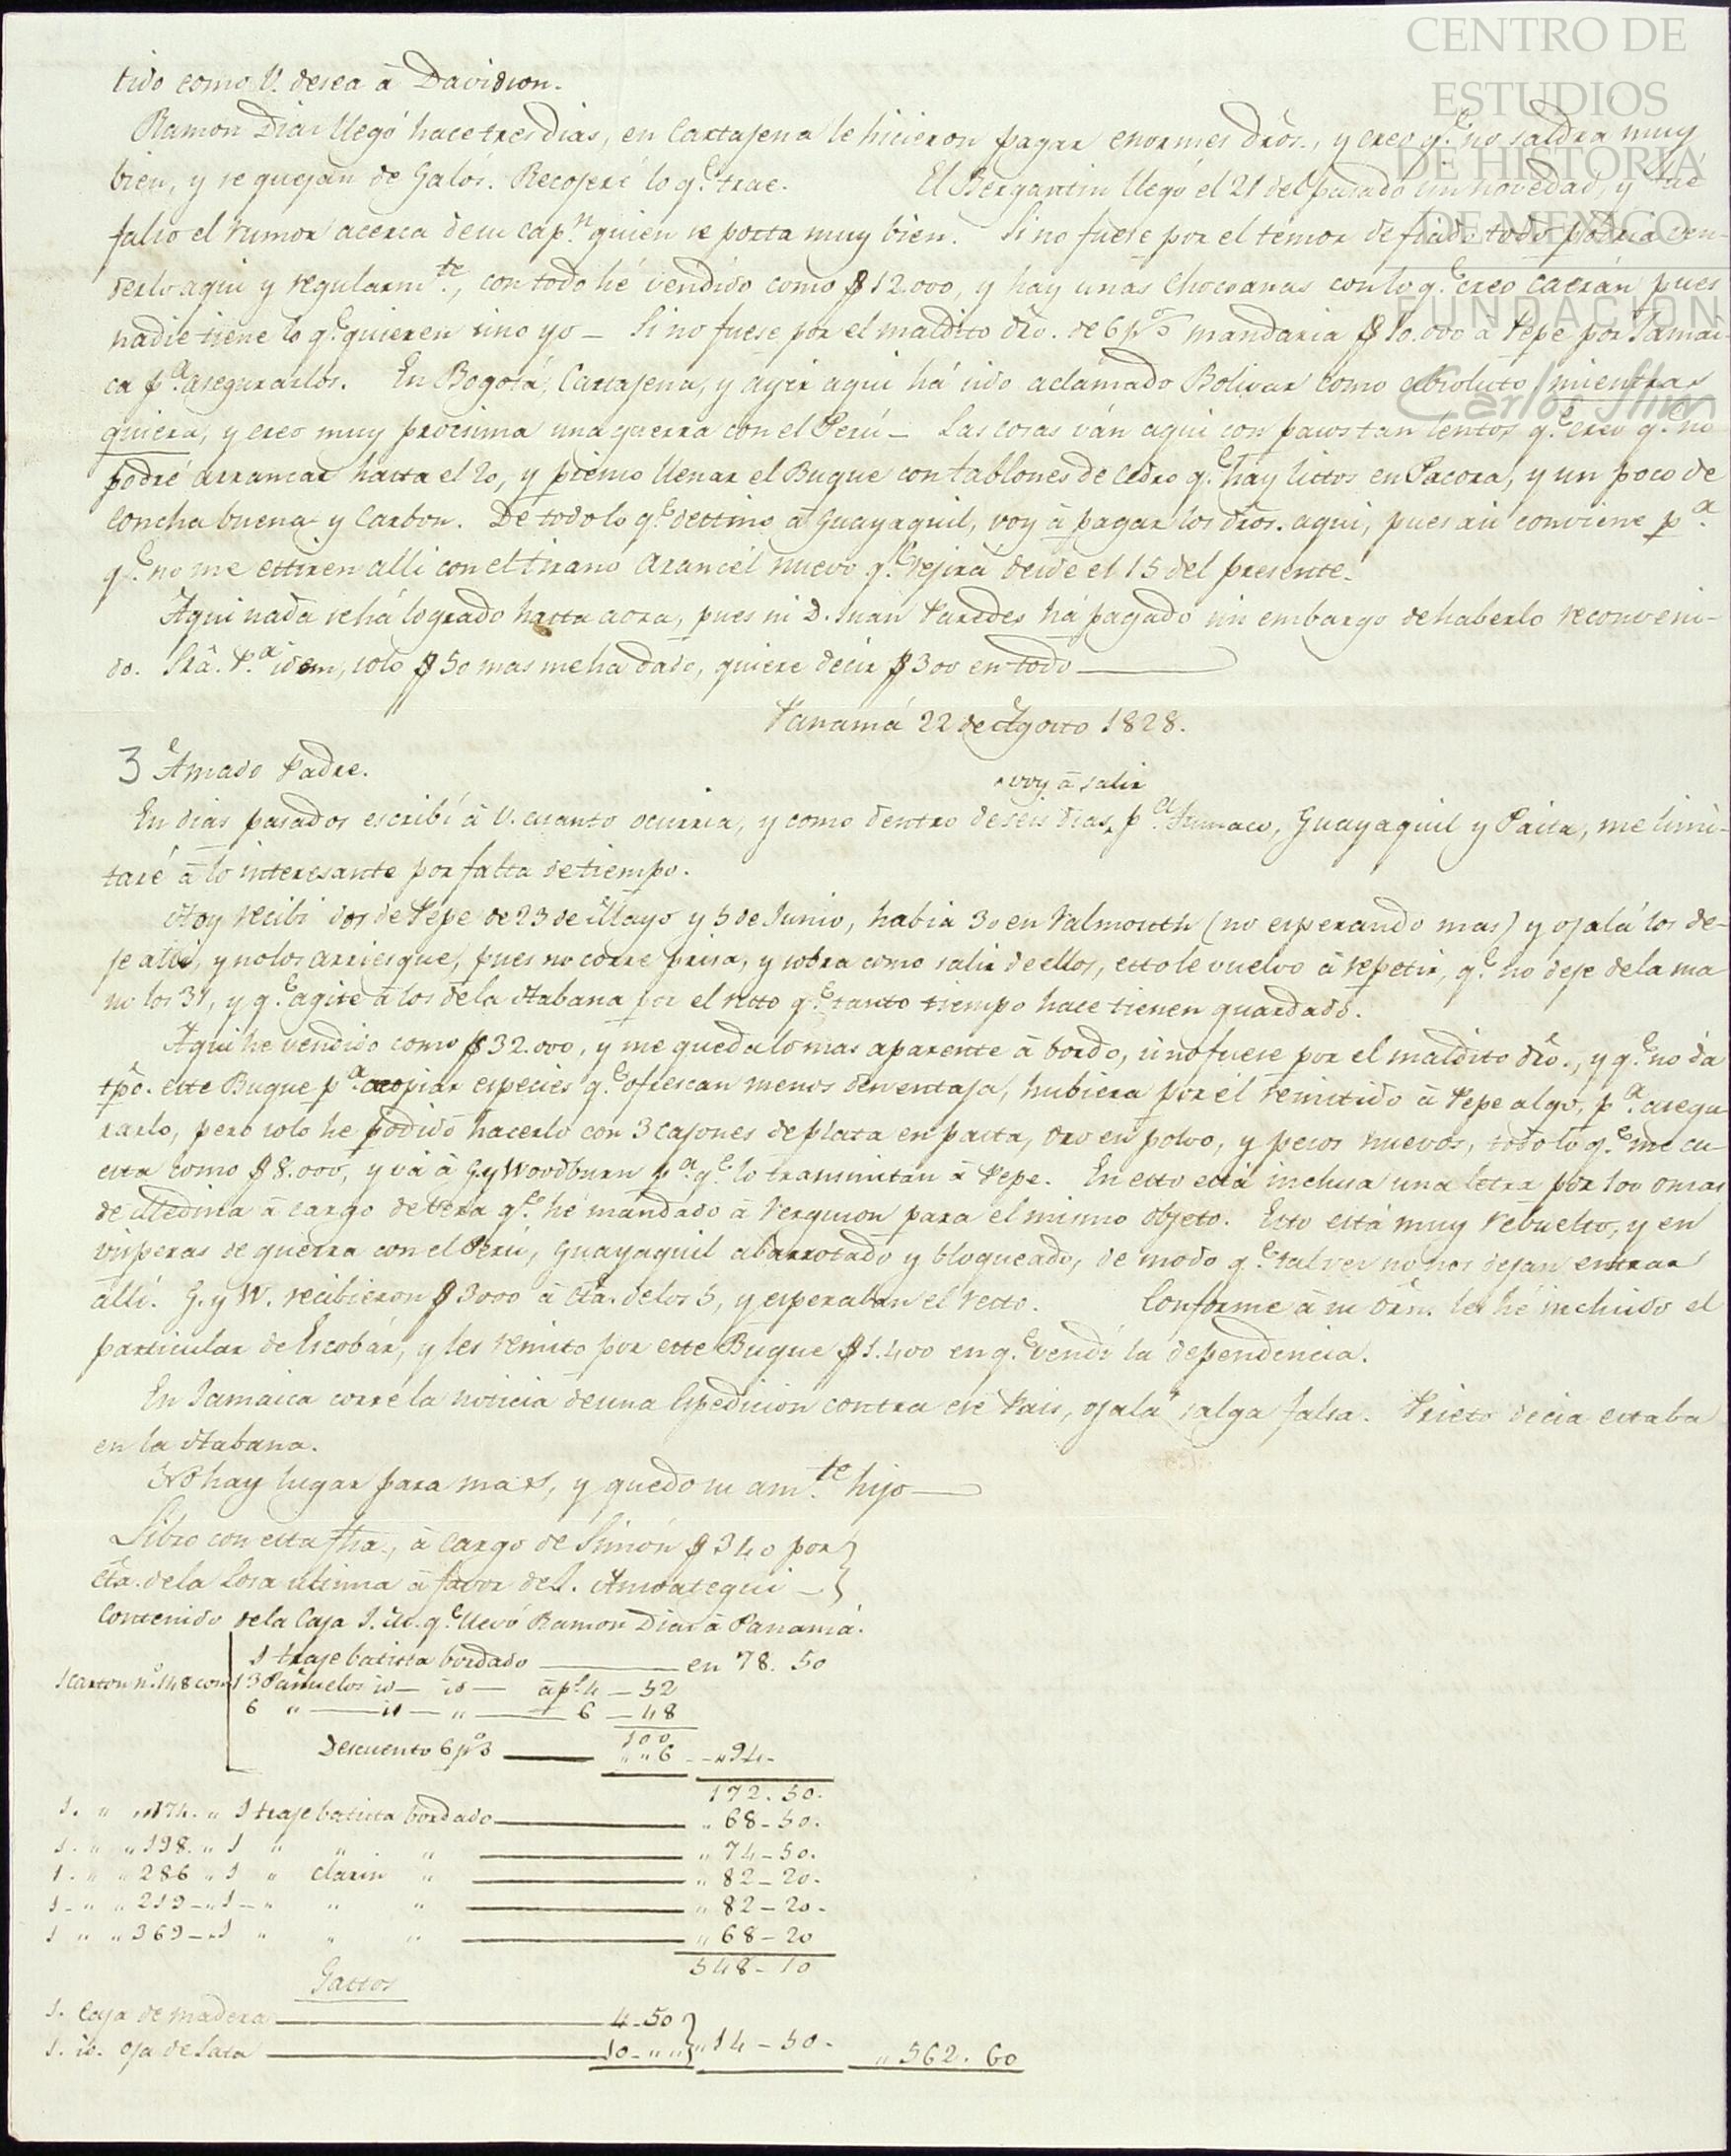 CENTRO DE
ESTUDIOS
DE HISTORIA
DE MEXICO
FUNDACION
Carlos Slim
tido como V. desea à Davidson.
Ramon Diaz llegó hace tres dias, en Cartajena le hicieron pagar enormes dr̃os., y creo q.e no saldra muy
bien, y se quejan de Galós. Recojeré lo q.e trae. El Bergantin llegó el 21 del pasado sin novedad, y fué
falso el rumor acerca de su cap.n quien se porta muy bien. Si no fuese por el temor de fiado todo podria ven-
derlo aqui y regularm.te, con todo hé vendido como $12.000, y hay unas Chocoanas con lo q.e creo caerán pues
nadie tiene lo q.e quieren sino yo — Si no fuese por el maldito dr̃o. de 6 p% mandaria $10.000 a Pepe por Jamai-
ca p.a asegurarlos. En Bogotá, Cartajena, y ayer aqui há sido aclamado Bolivar como absoluto mientras
quiera, y creo muy procsima una guerra con el Perú — Las cosas ván aqui con pasos tan lentos q.e creo q.e no
podré arrancar hasta el 20, y pienso llenar el Buque con tablones de Cedro q.e hay listos en Pacora, y un poco de
Concha buena y Carbon. De todo lo q.e destino à Guayaquil, voy à pagar los dr̃os. aqui, pues asi conviene p.a
q.e no me estiren alli con el tirano Arancél nuevo q.e rejirá desde el 15 del presente.
Aqui nada se há logrado hasta aora, pues ni D. Juan Paredes há pagado sin embargo de haberlo reconveni-
do. Srã. P.a idem, solo $50 mas me ha dado, quiere decir $300 en todo —
Panamá 22 de Agosto 1828.
3 Amado Padre.
voy à salir
En dias pasados escribí à V. cuanto ocurria, y como dentro de seis dias p.a Tumaco, Guayaquil y Paita, me limi-
taré à lo interesante por falta de tiempo.
Hoy recibi dos de Pepe de 23 de Mayo y 5 de Junio, habia 30 en Falmouth (no esperando mas) y ojalá los de-
je alli, y no los arriesgue, pues no corre prisa, y sobra como salir de ellos, esto le vuelvo à repetir, q.e no deje de la ma
no los 31, y q.e agite à los de la Habana por el resto q.e tanto tiempo hace tienen guardado.
Aqui he vendido como $32.000, y me queda lo mas aparente à bordo, si no fuese por el maldito dr̃o., y q.e no dá
tp̃o. este Buque p.a acopiar especies q.e ofrescan menos desventaja, hubiera por él remitido à Pepe algo, p.a asegu
rarlo, pero solo he podido hacerlo con 3 cajones de plata en pasta, oro en polvo, y pesos nuevos, todo lo q.e me cu-
esta como $8.000, y vá à G. y Woodburn p.a q.e lo transmitan à Pepe. En esto está inclusa una letra por 100 onzas
de Medina à cargo de Vera q.e hé mandado à Ferguson para el mismo objeto. Esto está muy rebuelto, y en
visperas de guerra con el Perú, Guayaquil abarrotado y bloqueado, de modo q.e talvez no nos dejan entrar
allí. G. y W. recibieron $3000 à ctã. de los 5, y esperaban el resto. Conforme à su orñ. les hé incluido el
particular de Escobár, y les remito por este Buque $1.400 en q.e vendí la dependencia.
En Jamaica corre la noticia de una Espedicion contra ese Pais, ojalá salga falsa. Prieto decia estaba
en la Habana.
No hay lugar para mas, y quedo su am.te hijo —
Libro con esta fha., à cargo de Simón $340 por
ctã. de la Losa ultima à favor de J. Amoategui —
Contenido de la Caja J. M. q.e llevó Ramon Diaz à Panamá.
1 traje batista bordado — en 78. 50
1 Carton n.o 148 con 13 Pañuelos id — id — à p.s 4 — 52
6 " — id — " — 6 — 48
100
Descuento 6 p% — " " 6 - - " 94 -
172. 50.
1. " " 174. " 1 traje batista bordado — " 68 - 50.
1. " " 198. " 1 " " " — " 74 - 50.
1. " " 286 " 1 " Clarin " — " 82 - 20.
1 - " " 219 - " 1 - " " " — " 82 - 20.
1 " " 369 - " 1 " " " — " 68 - 20
548 - 10
Gastos
1. Caja de madera — 4. 50
1. id. oja de lata — 10 - " " " 14 - 50. — " 562. 60